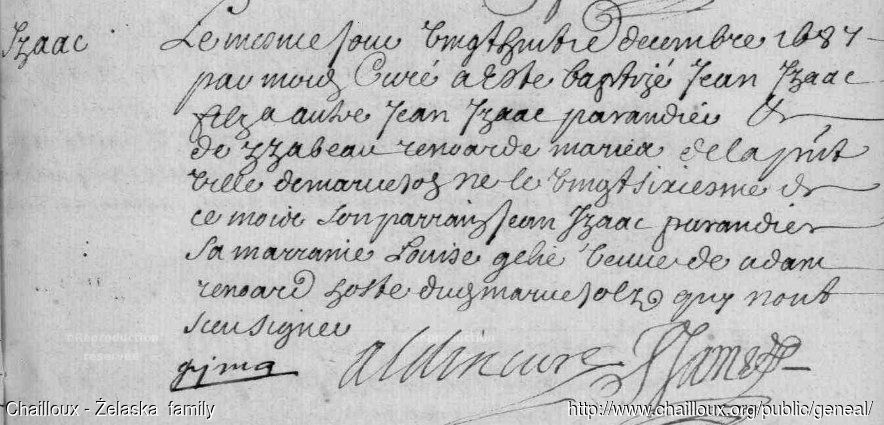 Izaac
Le mesme jour vingt huitie decembre 1687
par moid Curé a Este baptizé Jean Izaac
filz a autre Jean Izaac parandier &
de Yzabeau renoarde mariea de la pnt
ville de maruejolz ne le vingt sixiesme de
ce moice son parrain Jean Izaac parandier
sa marranie Louise gelie veuve de adam
renoard hoste dud maruejolz quy nont
sceu signer
©Reproduction
réservée
Chailloux - Żelaska family
http://www.chailloux.org/public/geneal/